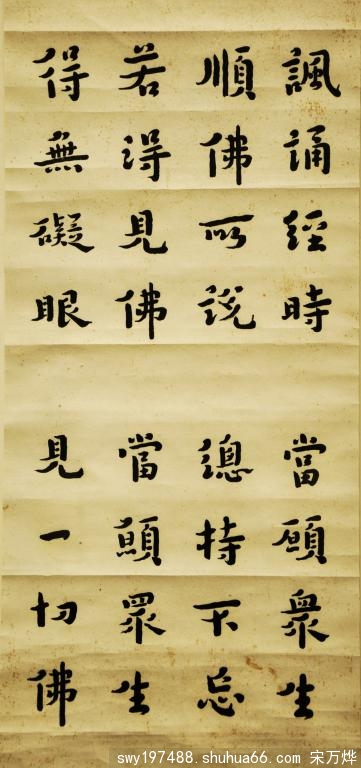 諷誦經時 當願衆生
順佛所説 總持不忘
若得見佛 當願眾生
得無礙眼 見一切佛
swy197488.shuhua66.com 宋万烨